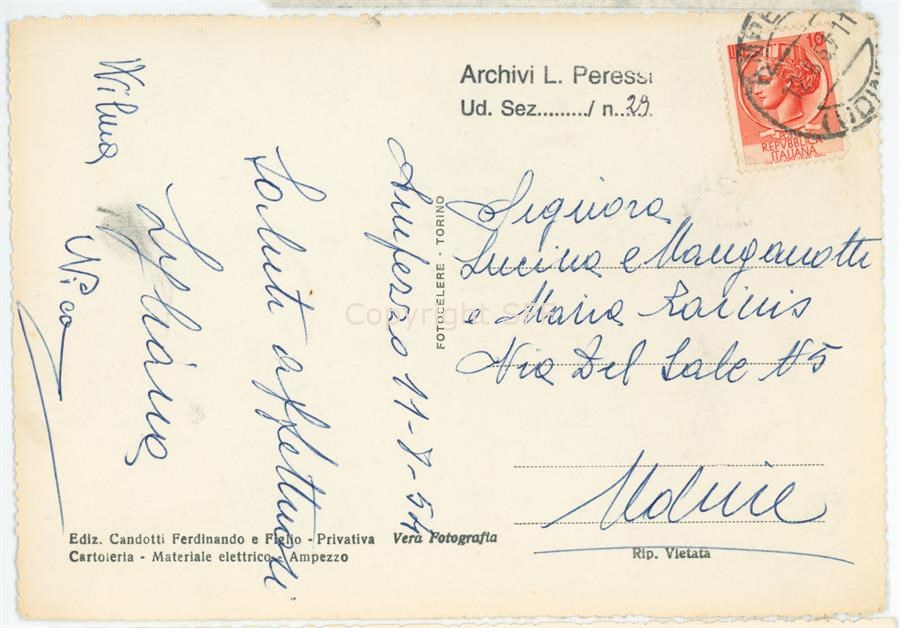 Archivi L. Peressi
Ud. Sez........./ n..29.
10
REPVBBLICA
ITALIANA
Ampezzo 11-8-54
Saluti affettuosi
Wilma
Nico
FOTOCELERE - TORINO
Signora
Lucina e Manganotti
e Maria Rainis
Via Del Sale N5
Udine
Ediz. Candotti Ferdinando e Figlio - Privativa
Cartoleria - Materiale elettrico - Ampezzo
Vera Fotografia
Rip. Vietata
Copyright